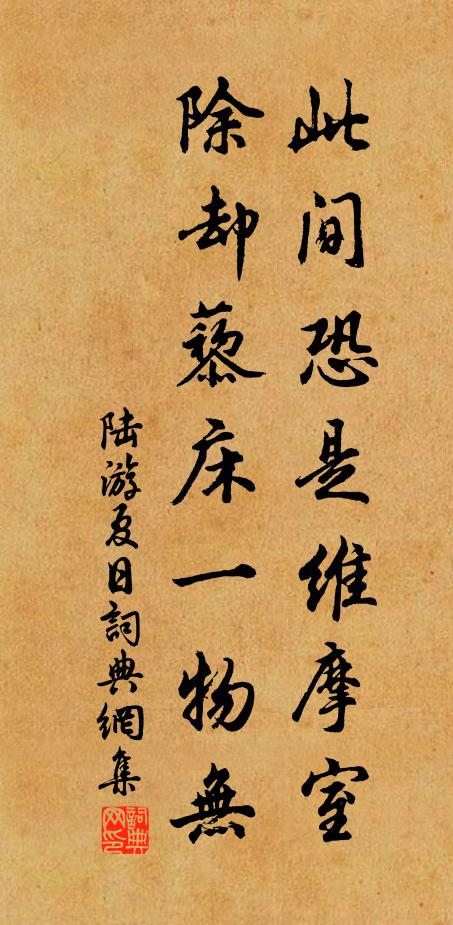 此间恐是維摩室
除却藜床一物無
陆游夏日詞典網集
詞典网印